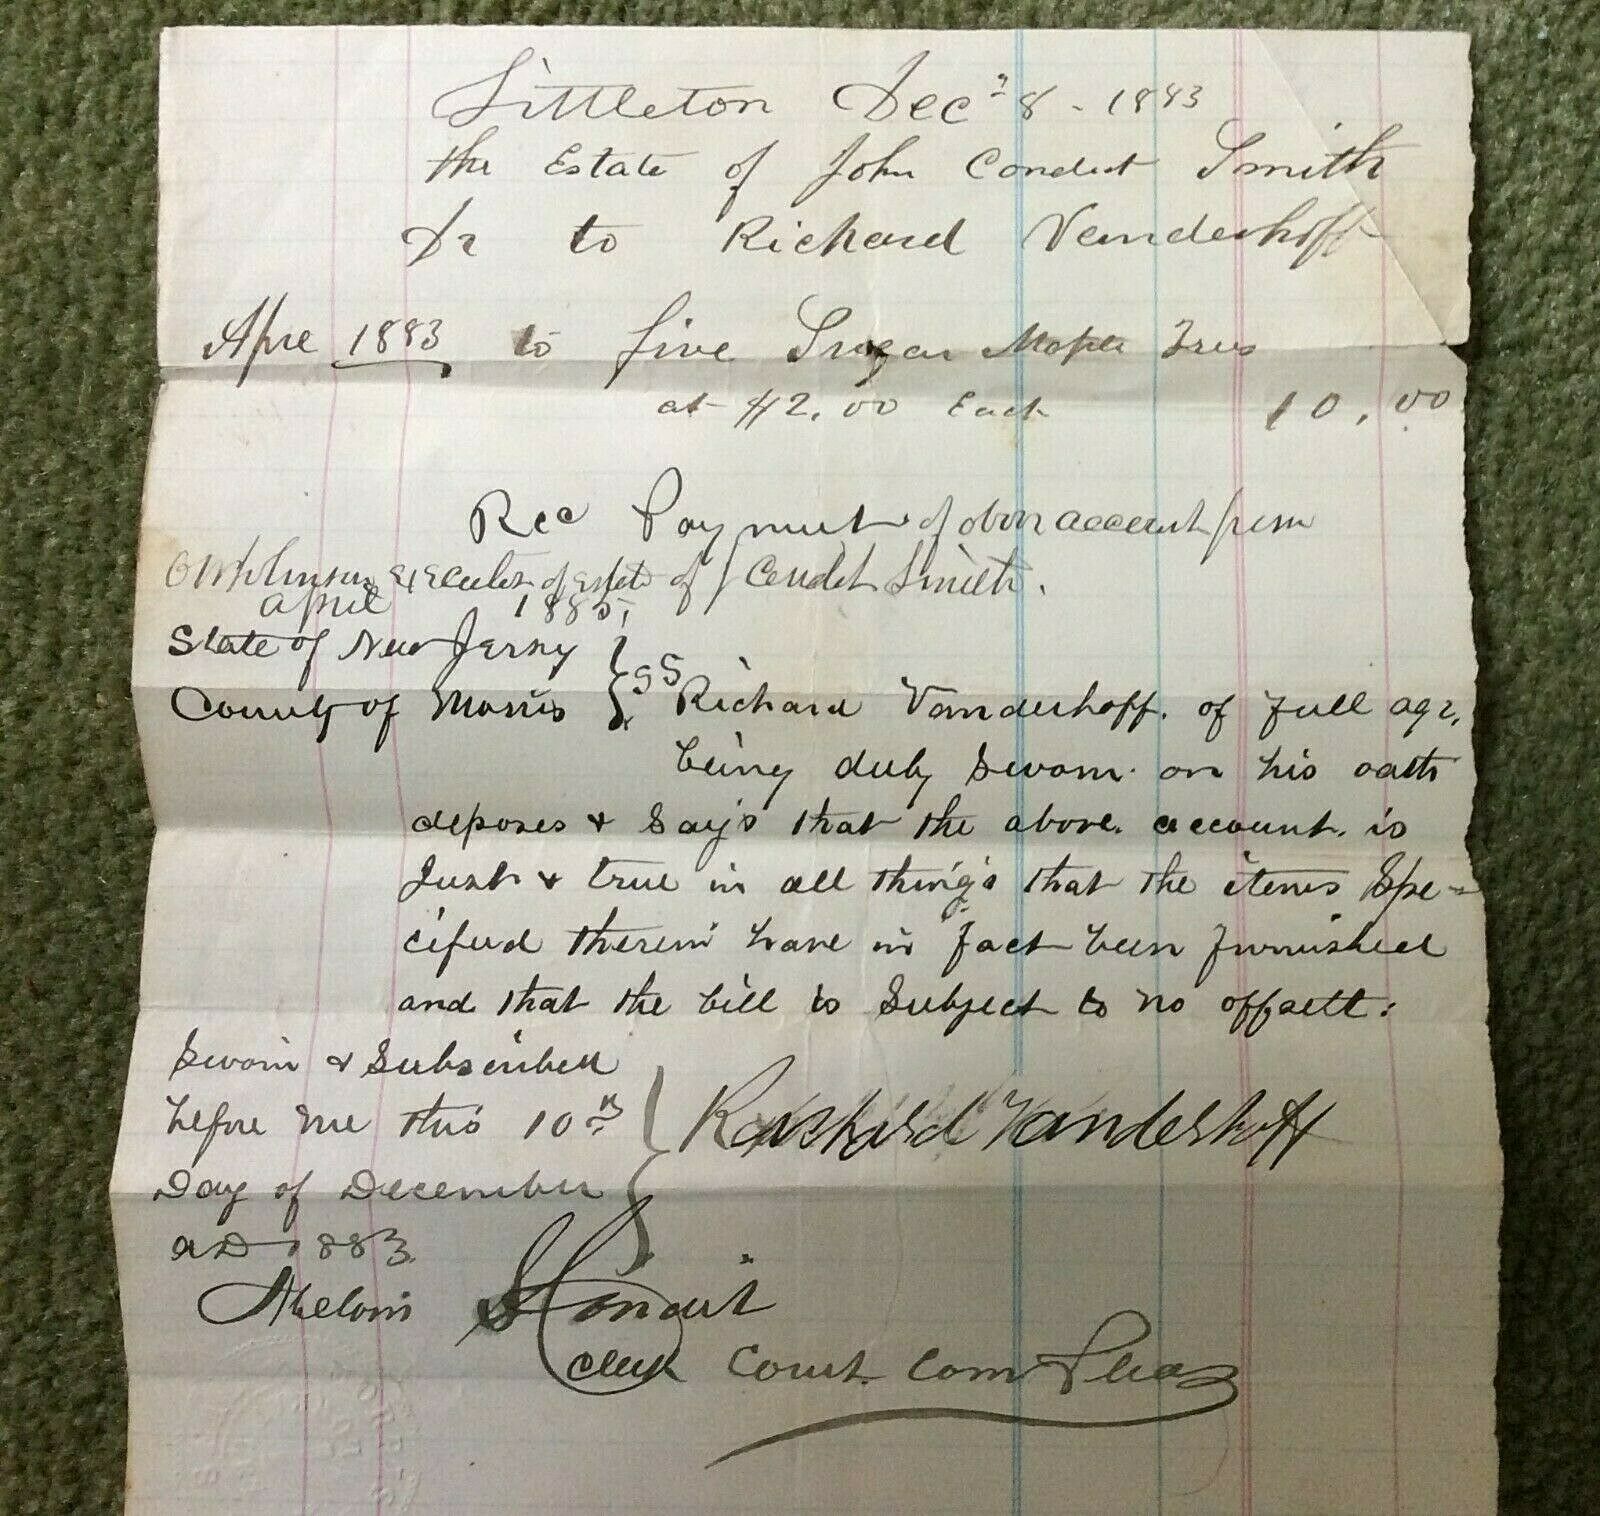 Littleton Dec 8 - 1883
the Estate of John Condict Smith
Dr to Richard Vanderhoff
Apre 1883 to five Sugar Maple Trees
at $2.00 Each 10.00
Rec Payment of abov account from
executor of estate of J Condit Smith.
april 1885,
State of New Jersey } SS
County of Morris } Richard Vanderhoff. of full age,
being duly Sworn on his oath
deposes & Say's that the above account is
Just & true in all thing's that the items Spe-
cified therein have in fact been furnished
and that the bill is Subject to no offsett:
Sworn & Subscribed
before me this 10th
Day of December
AD 1883
Richard Vanderhoff
Melvin S Condit
Clerk Court Com Pleas